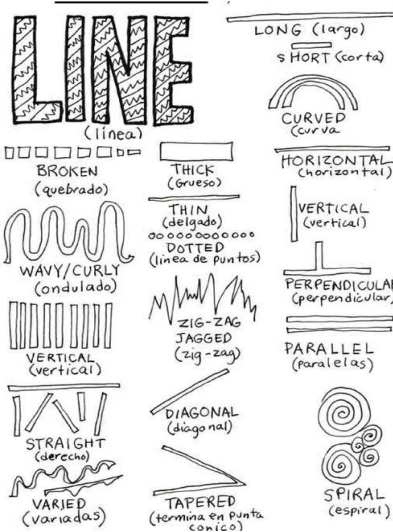 LINE
(linea)
BROKEN
(quebrado)
WAVY/CURLY
(ondulado)
VERTICAL
(vertical)
STRAIGHT
(derecho)
VARIED
(variadas)
THICK
(Grueso)
THIN
(delgado)
DOTTED
(linea de puntos)
ZIG-ZAG
JAGGED
(zig-zag)
DIAGONAL
(diagonal)
TAPERED
(termina en punta
conico)
LONG (largo)
SHORT (corta)
CURVED
(curva
HORIZONTAL
(horizontal)
VERTICAL
(vertical)
PERPENDICULAR
(perpendicular)
PARALLEL
(paralelas)
SPIRAL
(espiral)